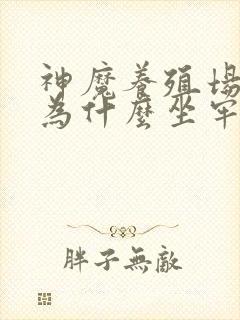 神魔養殖場
為什麼坐牢
胖子無敵